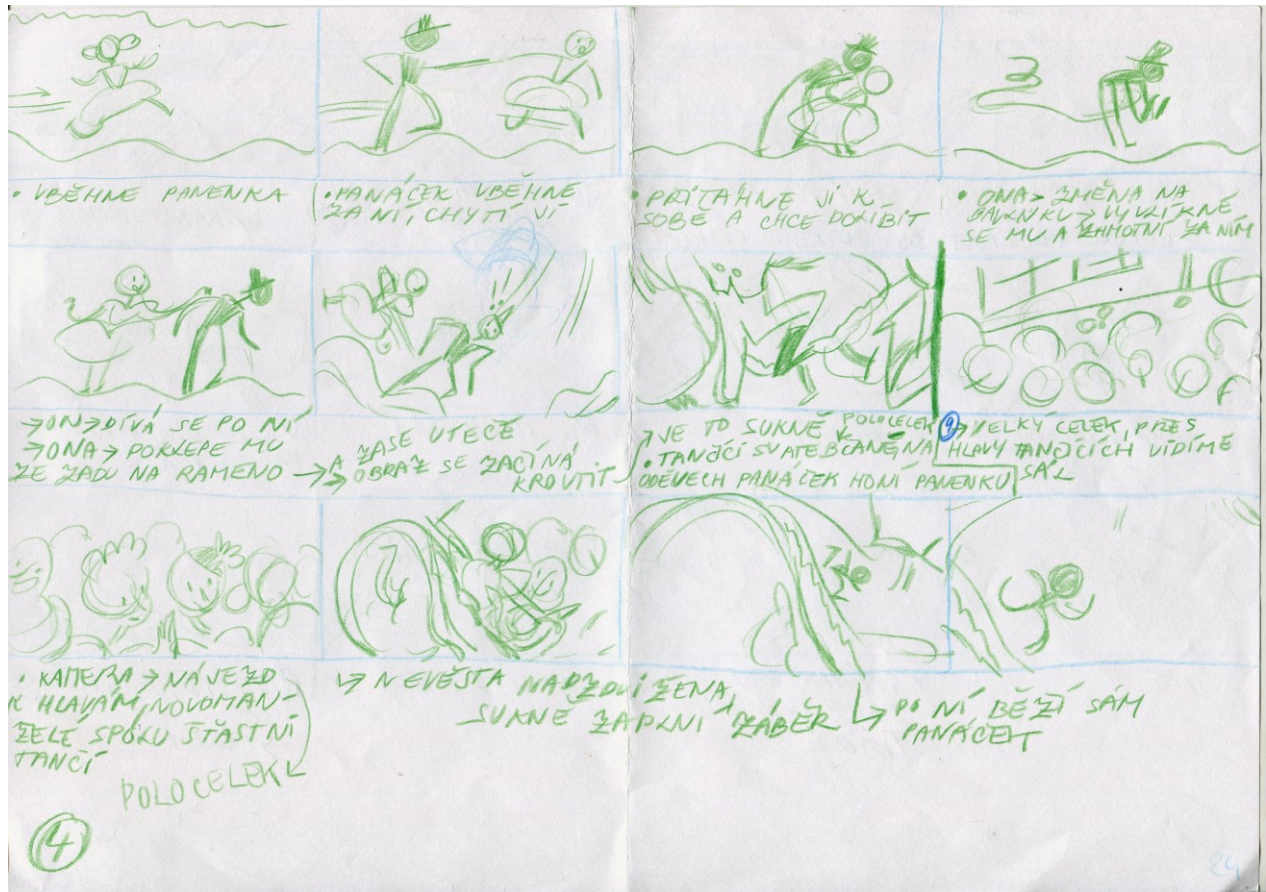 • VBĚHNE PANENKA
• PANÁČEK VBĚHNE
ZA NÍ, CHYTÍ JÍ
• PŘITÁHNE JÍ K
SOBĚ A CHCE POLÍBIT
• ONA → ZMĚNA NA
BAVLNKU → VYVLÍKNE
SE MU A ZHMOTNÍ ZA NÍM
→ ON → DÍVÁ SE PO NÍ
→ ONA → POKLEPE MU
ZE ZADU NA RAMENO
→ A ZASE UTEČE
→ OBRAZ SE ZAČÍNÁ
KROUTIT
→ JE TO SUKNĚ POLOCELEK
• TANČÍCÍ SVATEBČANÉ, NA
ODĚVECH PANÁČEK HONÍ PANENKU
9 → VELKÝ CELEK, PŘES
HLAVY TANČÍCÍCH VIDÍME
SÁL
• KAMERA → NÁJEZD
K HLAVÁM, NOVOMAN-
ŽELÉ SPOLU ŠŤASTNÍ
TANČÍ
POLOCELEK
↳ NEVĚSTA NADZDVIŽENA,
SUKNĚ ZAPLNÍ ZÁBĚR
↳ PO NÍ BĚŽÍ SÁM
PANÁČEK
4
24